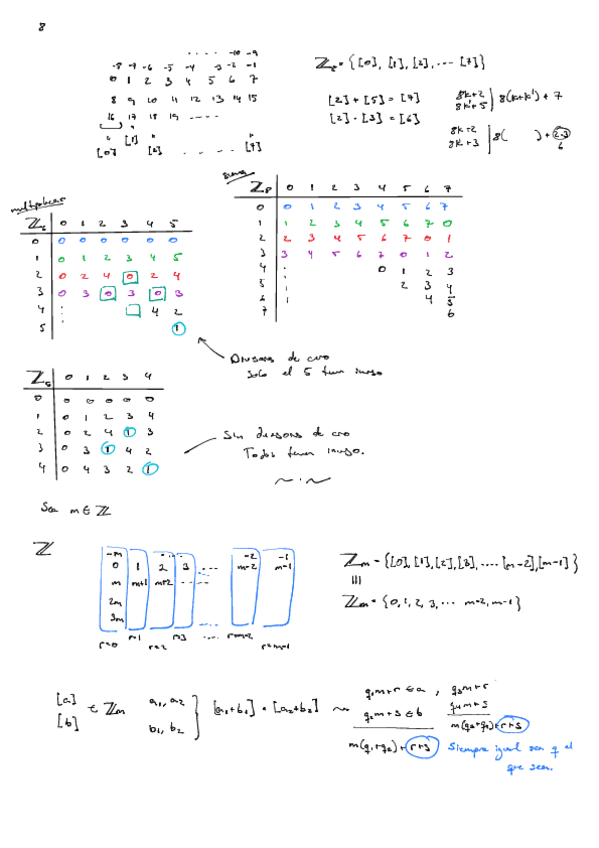 8
.... -10 -9
-8 -7 -6 -5 -4 -3 -2 -1
0 1 2 3 4 5 6 7
8 9 10 11 12 13 14 15
16 17 18 19 ----
[0] [1] [2] ..... [7]
ℤ₈ = {[0], [1], [2], ... [7]}
[2] + [5] = [7]
[2] · [3] = [6]
8k+2
8k'+5 | 8(k+k') + 7
8k+2
8k+3 | 8( ) + 2·3
6
suma
ℤ₈ 0 1 2 3 4 5 6 7
0 0 1 2 3 4 5 6 7
1 1 2 3 4 5 6 7 0
2 2 3 4 5 6 7 0 1
3 3 4 5 6 7 0 1 2
4 : 0 1 2 3
5 2 3 4
6 4 5
7 6
multiplicar
ℤ₆ 0 1 2 3 4 5
0 0 0 0 0 0 0
1 0 1 2 3 4 5
2 0 2 4 0 2 4
3 0 3 0 3 0 3
4 : 4 2
5 1
Divisores de cero
Solo el 5 tiene inverso
ℤ₅ 0 1 2 3 4
0 0 0 0 0 0
1 0 1 2 3 4
2 0 2 4 1 3
3 0 3 1 4 2
4 0 4 3 2 1
Sin divisores de cero
Todos tienen inverso.
Sea m ∈ ℤ
ℤ
-m .... -2 -1
0 1 2 3 ... m-2 m-1
m m+1 m+2 ----
2m
3m
r=0 r=1 r=3 .... r=m-2 r=m-1
ℤm = {[0], [1], [2], [3], .... [m-2], [m-1]}
≡
ℤm = {0, 1, 2, 3, ... m-2, m-1}
[a]
[b] ∈ ℤm
a₁, a₂
b₁, b₂
[a₁+b₁] = [a₂+b₂]
q₁m+r ∈ a, q₃m+r
q₂m+s ∈ b q₄m+s
m(q₁+q₂)+r+s
m(q₃+q₄)+r+s
Siempre igual sea q el
que sea.